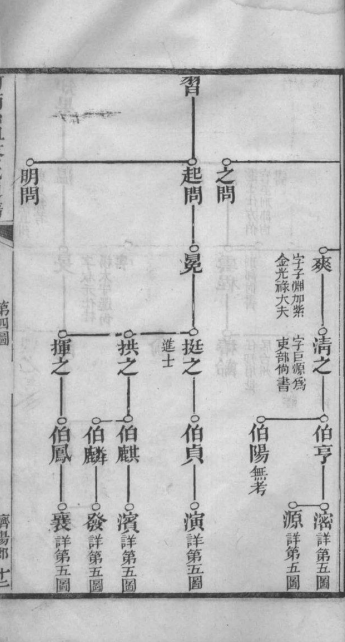 習
之問
起問
明問
奭
字子淵加紫
金光祿大夫
冕
清之
字巨源爲
吏部尚書
挺之
進士
拱之
揮之
伯亨
伯陽
無考
伯貞
伯麒
伯麟
伯鳳
詳第五圖
源
詳第五圖
演
詳第五圖
濱
詳第五圖
發
詳第五圖
襄
詳第五圖
第四圖
濟陽郡
十二